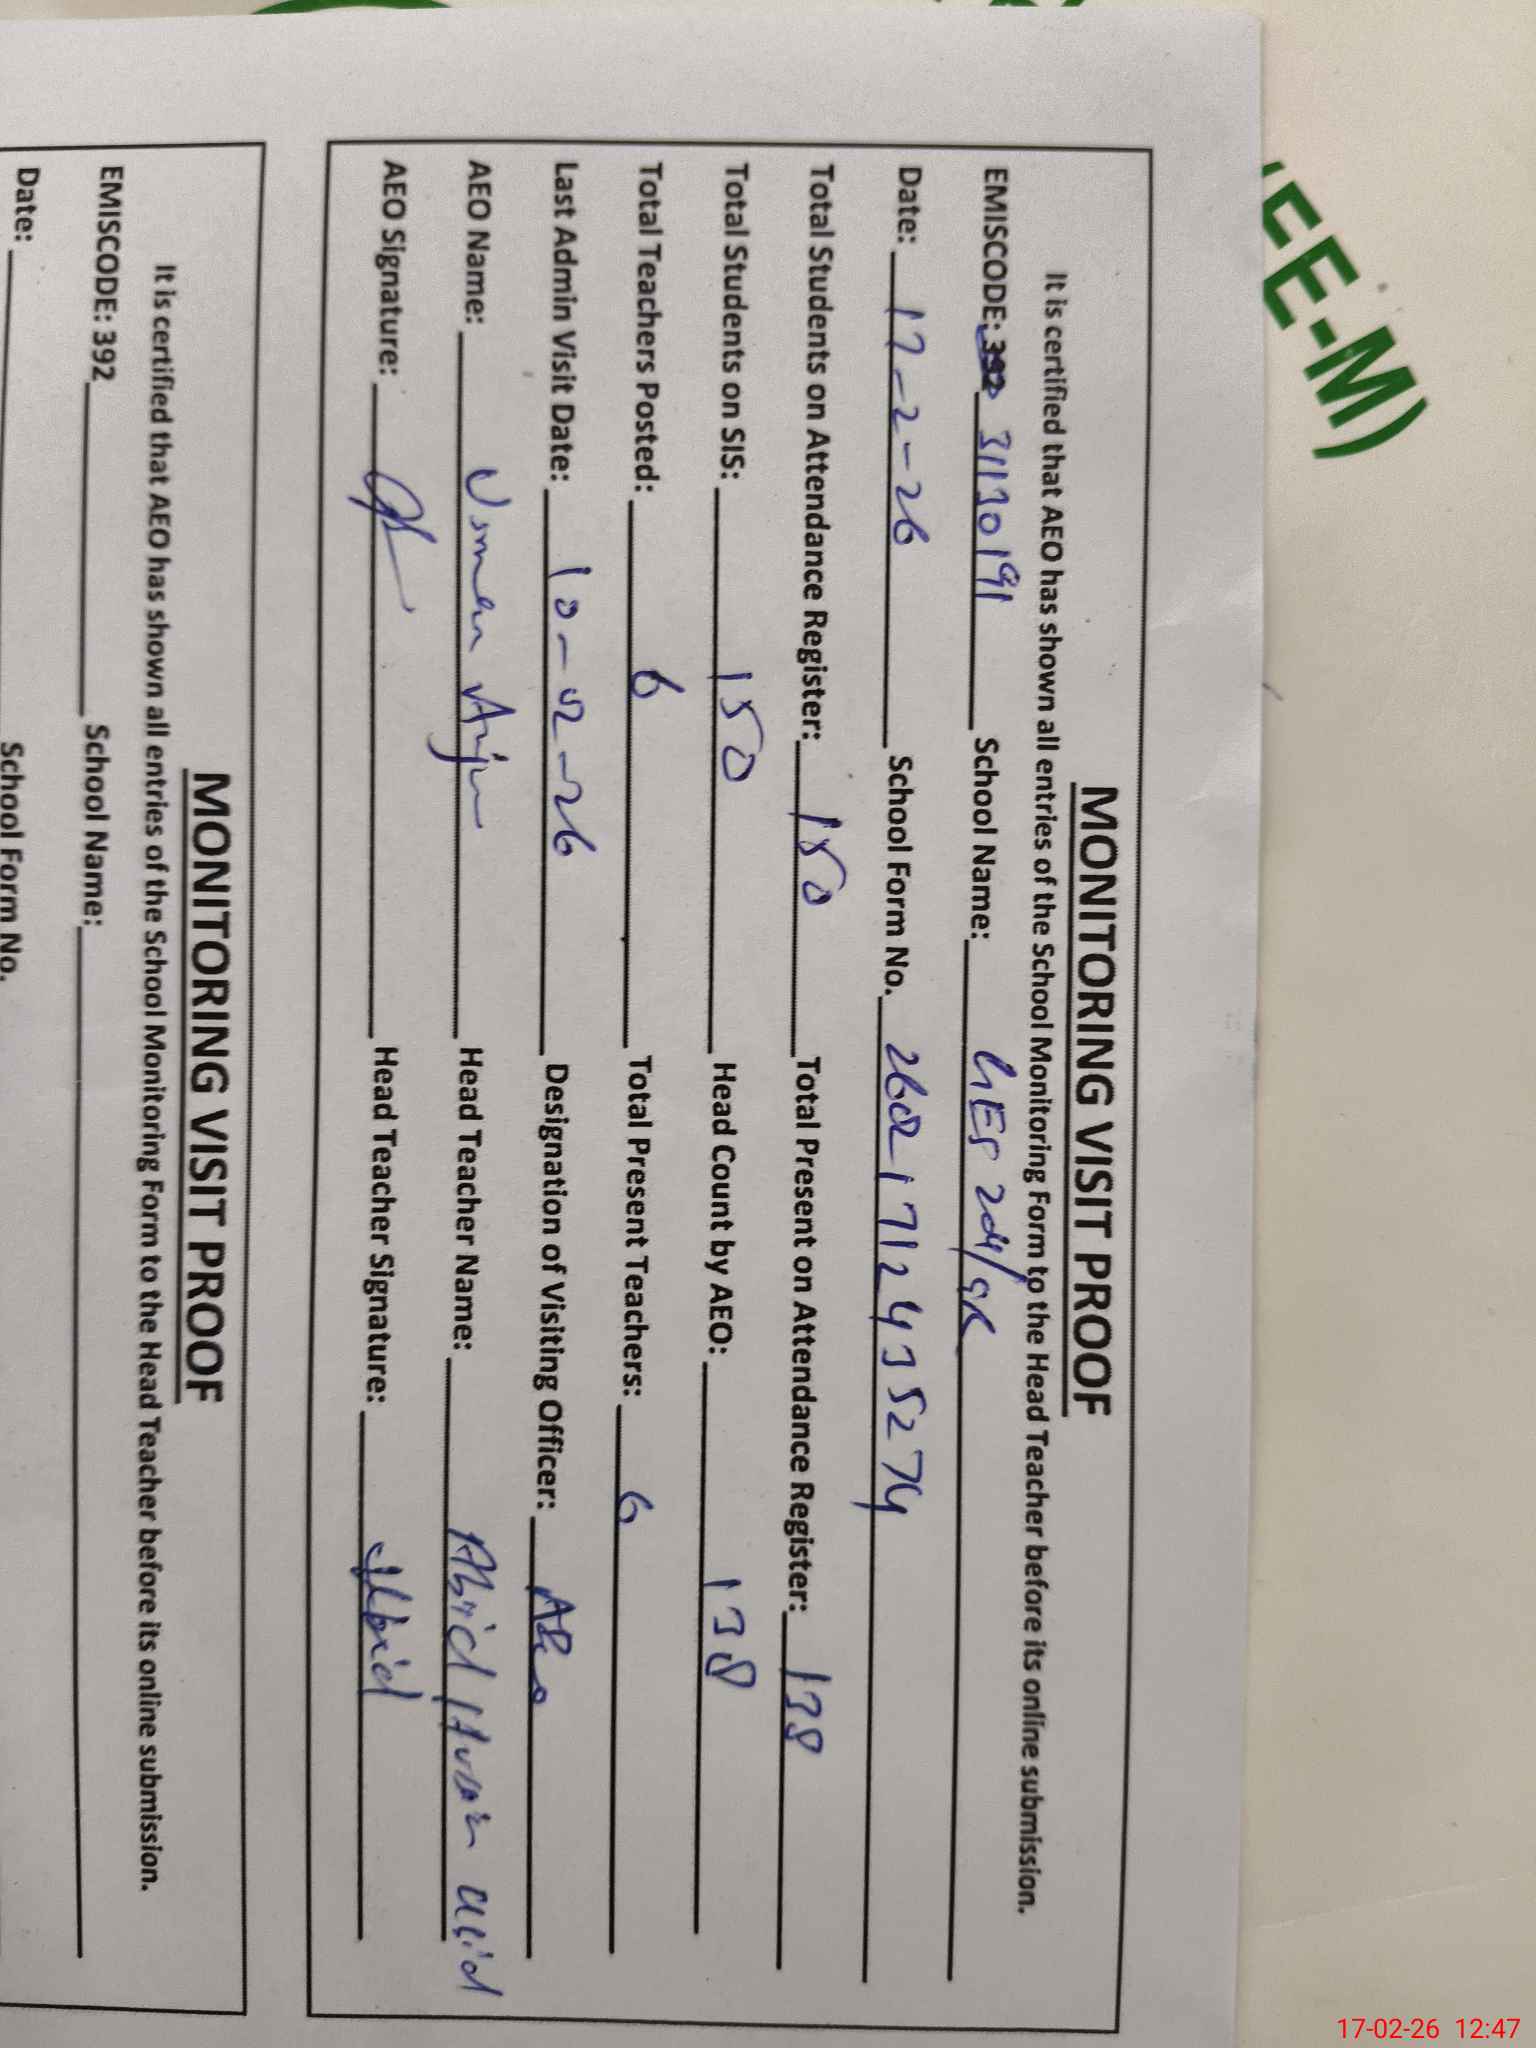 EE-M)
MONITORING VISIT PROOF
It is certified that AEO has shown all entries of the School Monitoring Form to the Head Teacher before its online submission.
EMISCODE: 392 31130191 School Name: GES 204/9R
Date: 17-2-26 School Form No. 26021712435274
Total Students on Attendance Register: 150 Total Present on Attendance Register: 138
Total Students on SIS: 150 Head Count by AEO: 138
Total Teachers Posted: 6 Total Present Teachers: 6
Last Admin Visit Date: 10-02-26 Designation of Visiting Officer: AEO
AEO Name: Usman Anjum Head Teacher Name: Abid Husain
AEO Signature: Head Teacher Signature: Abid
MONITORING VISIT PROOF
It is certified that AEO has shown all entries of the School Monitoring Form to the Head Teacher before its online submission.
EMISCODE: 392 School Name:
Date: School Form No.
17-02-26 12:47